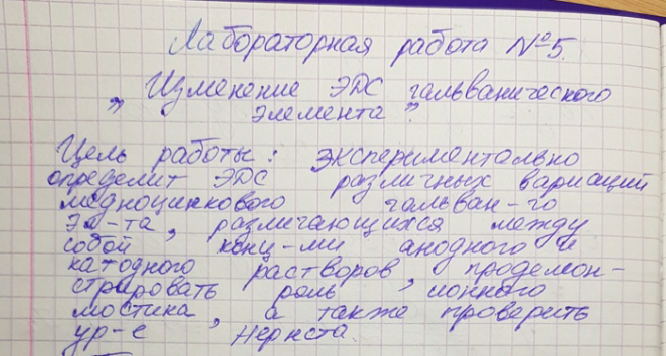 Лабораторная работа №5.
„Изменение ЭДС гальванического
элемента"
Цель работы: экспериментально
определит ЭДС различных вариаций
медноцинкового гальван-го
эл-та, различающихся между
собой конц-ми анодного и
катодного растворов, продемон-
стрировать роль ионного
мостика, а также проверить
ур-е Нернста.